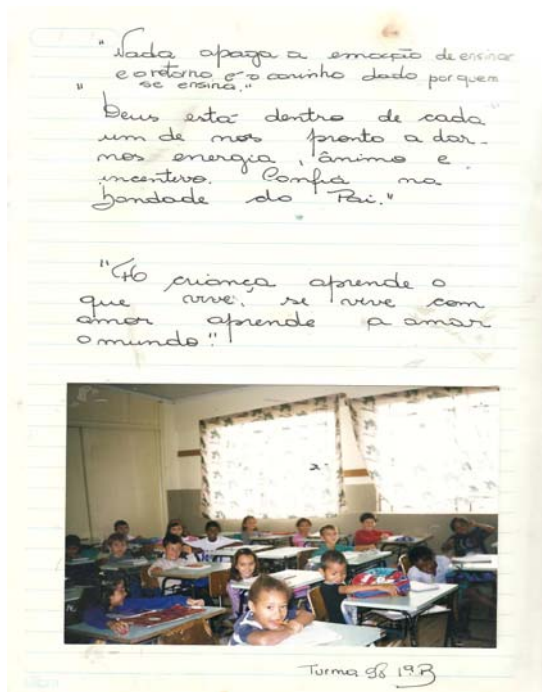 "Nada apaga a emoção de ensinar
e o retorno é o carinho dado por quem
se ensina."
"Deus está dentro de cada
um de nós pronto a dar-
nos energia, ânimo e
incentivo. Confia na
bondade do Pai."
"A criança aprende o
que vive, se vive com
amor aprende a amar
o mundo".
Turma 98 1ª B